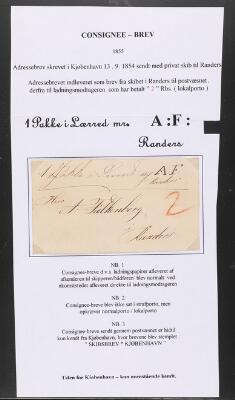 CONSIGNEE - BREV
1855
Adressebrev skrevet i Kjøbenhavn 13 . 9. 1854 sendt med privat skib til Randers
Adressebrevet indleveret som brev fra skibet i Randers til postvæsnet
derfra til ladningsmodtageren som har betalt " 2 " Rbs. ( lokalporto )
1 Pakke i Lærred mrc. A :F:
Randers
A F
Randers
2
NB. 1
Consignee-breve d.v.s. ladningspapirer afleveret af
afsenderen til skipperen/bådføren blev normalt ved
ankomststedet afleveret direkte til ladningsmodtageren
NB. 2
Consignee-breve blev ikke sat i strafporto, men
opkrævet normalporto ( lokalporto )
NB. 3
Consignee-breve sendt gennem postvæsnet er hidtil
kun kendt fra Kjøbenhavn , hvor brevene blev stemplet
" SKIBSBREV " KJØBENHAVN "
Uden for Kjøbenhavn - kun ovenstående kendt.